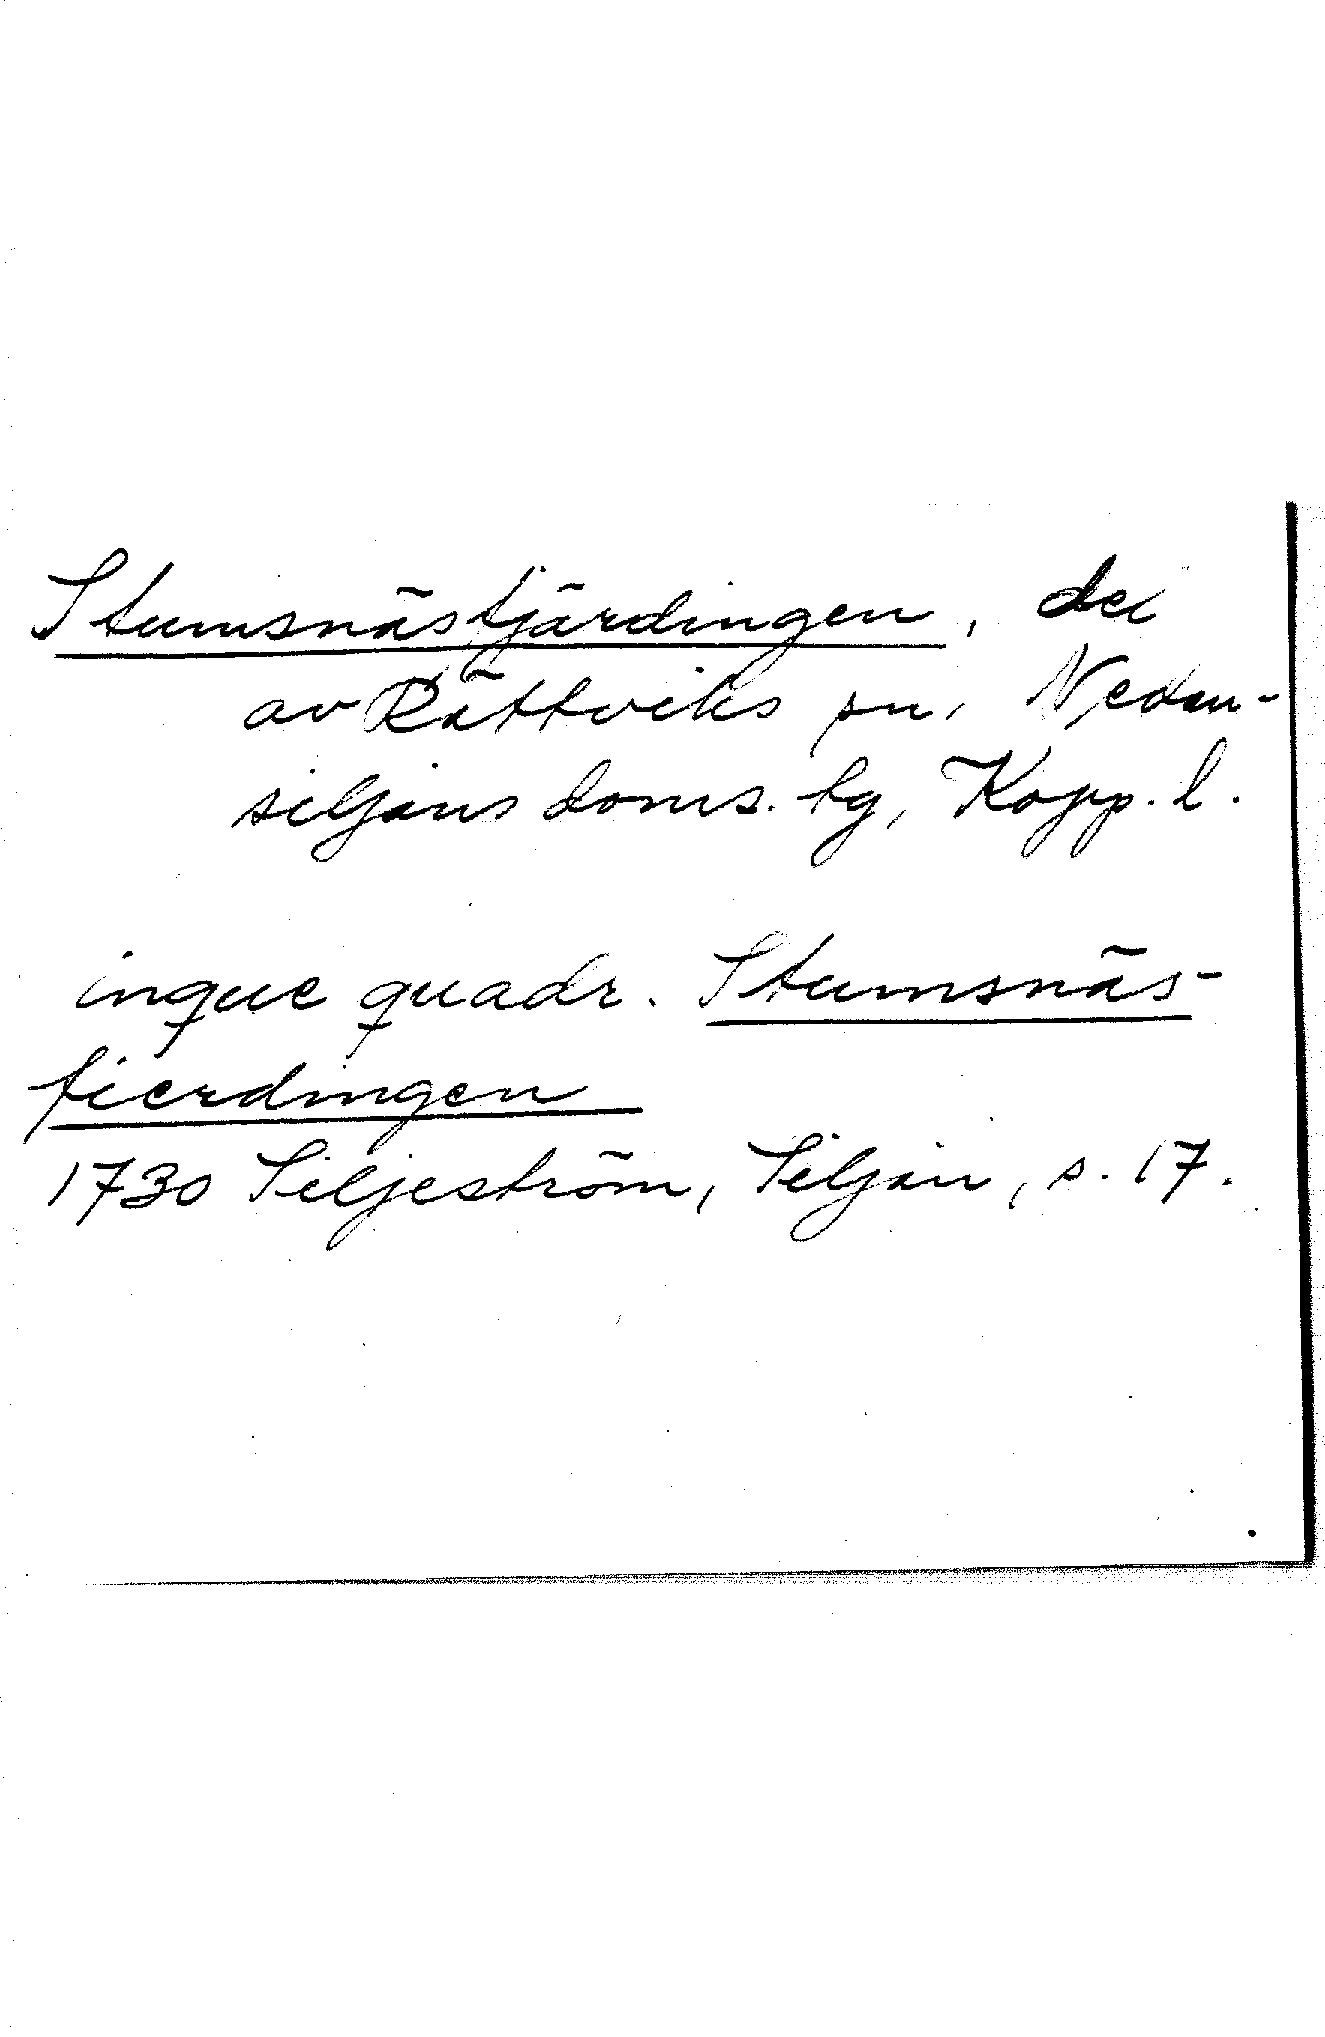 Stumsnäsfjärdingen, del
av Rättviks sn, Nedan-
siljans doms. tg, Kopp. l.
inque quadr. Stumsnäs-
fierdingen
1730 Siljeström, Siljan, s. 17.